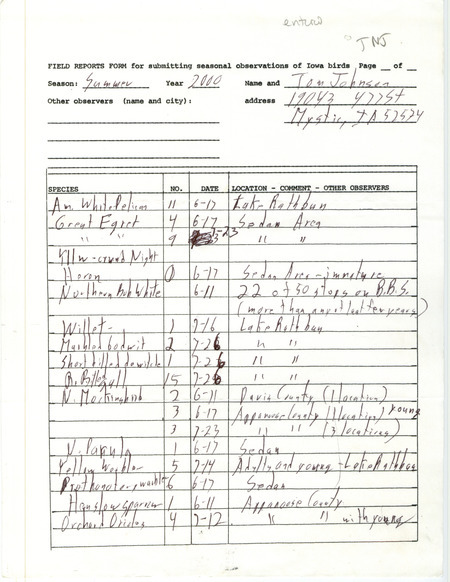 entered
TNJ
FIELD REPORTS FORM for submitting seasonal observations of Iowa birds Page __ of __
Season: Summer Year 2000 Name and Tom Johnson
Other observers (name and city): address 19043 477 St
Mystic, IA 52574
SPECIES NO. DATE LOCATION - COMMENT - OTHER OBSERVERS
Am. White Pelican 11 6-17 Lake Rathbun
Great Egret 4 6-17 Sedan Area
" " 9 7-23 " "
Yllw-crwnd Night
Heron 1 6-17 Sedan Area - immature
Northern Bobwhite 6-11 22 of 50 stops on B.B.S.
(more than any of last few years)
Willet 1 7-16 Lake Rathbun
Marbled Godwit 2 7-26 " "
Short billed dowitcher 1 7-26 " "
R. Billed gull 15 7-26 " "
N. Mockingbird 2 6-11 Davis County (1 location)
3 6-17 Appanoose County (1 location) young
3 7-23 " " (3 locations)
N. Parula 1 6-17 Sedan
Yellow Warbler 5 7-14 Adults and young - Lake Rathbun
Prothonotary warbler 6 6-17 Sedan
Henslow sparrow 1 6-11 Appanoose County
Orchard Orioles 4 7-12 " " with young